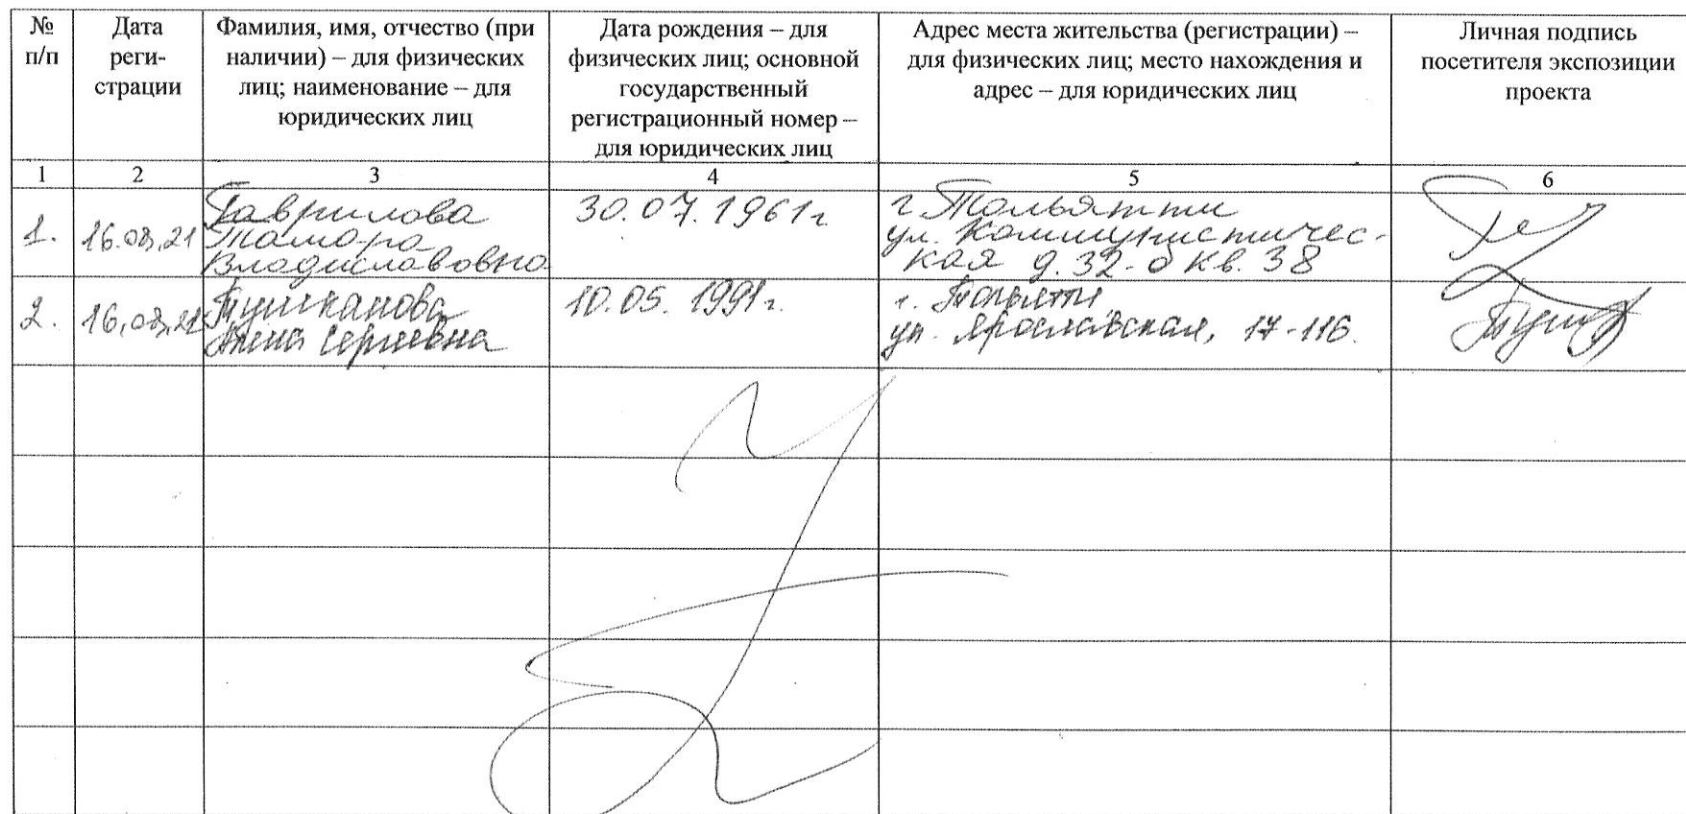 № п/п
Дата реги-страции
Фамилия, имя, отчество (при наличии) – для физических лиц; наименование – для юридических лиц
Дата рождения – для физических лиц; основной государственный регистрационный номер – для юридических лиц
Адрес места жительства (регистрации) – для физических лиц; место нахождения и адрес – для юридических лиц
Личная подпись посетителя экспозиции проекта
1 2 3 4 5 6
1.
16.08.21
Гаврилова
Тамара
Владиславовна
30.07.1961г.
г. Тольятти
ул. Коммунистичес-
кая д. 32-б кв. 38
2.
16.08.21
Тушканова
Сергеевна
10.05.1991г.
г. Тольятти
ул. Ярославская, 17-116.